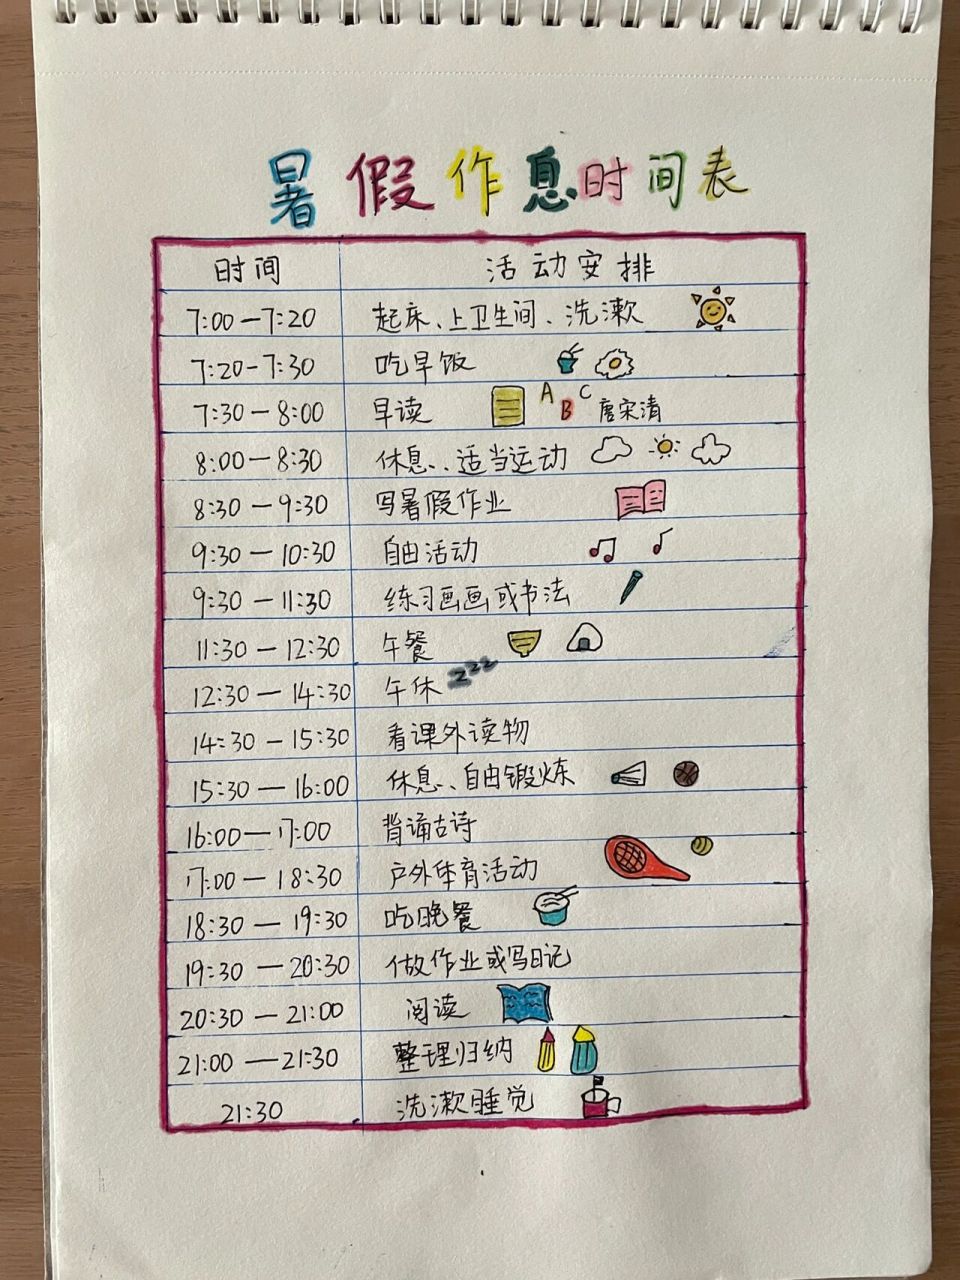 暑假作息时间表
时间 活动安排
7:00-7:20 起床、上卫生间、洗漱
7:20-7:30 吃早饭
7:30-8:00 早读 A B C 唐宋清
8:00-8:30 休息、适当运动
8:30-9:30 写暑假作业
9:30-10:30 自由活动
9:30-11:30 练习画画或书法
11:30-12:30 午餐
12:30-14:30 午休 zzz
14:30-15:30 看课外读物
15:30-16:00 休息、自由锻炼
16:00-17:00 背诵古诗
17:00-18:30 户外体育活动
18:30-19:30 吃晚餐
19:30-20:30 做作业或写日记
20:30-21:00 阅读
21:00-21:30 整理归纳
21:30 洗漱睡觉